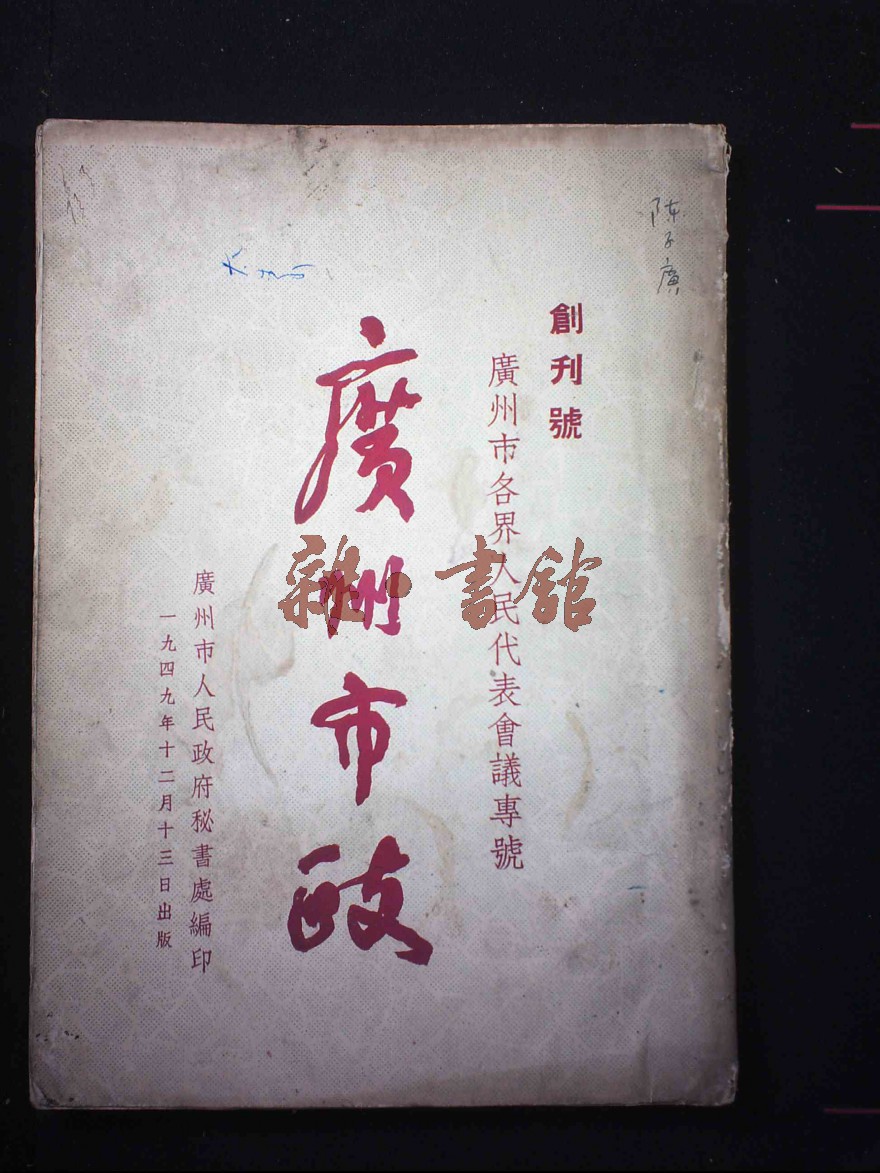 陈子廣
創刊號
廣州市各界人民代表會議專號
廣州市政
廣州市人民政府秘書處編印
一九四九年十二月十三日出版
雜·書館